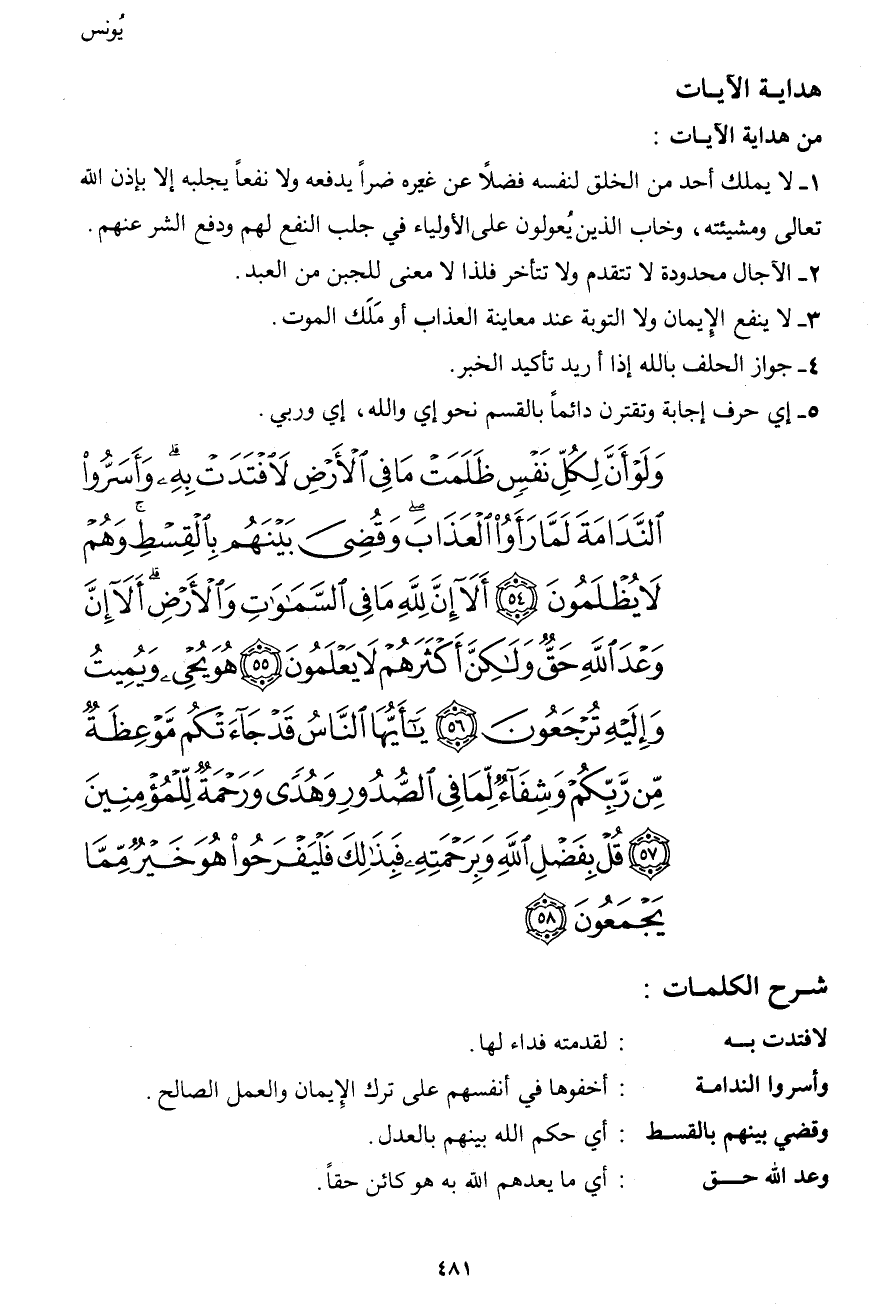 يُونس
هداية الآيات
من هداية الآيات :
١ـ لا يملك أحد من الخلق لنفسه فضلًا عن غيره ضراً يدفعه ولا نفعاً يجلبه إلا بإذن الله
تعالى ومشيئته، وخاب الذين يُعولون على الأولياء في جلب النفع لهم ودفع الشر عنهم.
٢ـ الآجال محدودة لا تتقدم ولا تتأخر فلذا لا معنى للجبن من العبد.
٣ـ لا ينفع الإيمان ولا التوبة عند معاينة العذاب أو مَلَك الموت.
٤ـ جواز الحلف بالله إذا أ ريد تأكيد الخبر.
٥ـ إي حرف إجابة وتقترن دائماً بالقسم نحو إي والله، إي وربي.
وَلَوْ أَنَّ لِكُلِّ نَفْسٍ ظَلَمَتْ مَا فِي ٱلْأَرْضِ لَٱفْتَدَتْ بِهِۦۗ وَأَسَرُّوا۟
ٱلنَّدَامَةَ لَمَّا رَأَوُا۟ ٱلْعَذَابَۖ وَقُضِىَ بَيْنَهُم بِٱلْقِسْطِۚ وَهُمْ
لَا يُظْلَمُونَ ٥٤ أَلَآ إِنَّ لِلَّهِ مَا فِي ٱلسَّمَٰوَٰتِ وَٱلْأَرْضِۗ أَلَآ إِنَّ
وَعْدَ ٱللَّهِ حَقٌّ وَلَٰكِنَّ أَكْثَرَهُمْ لَا يَعْلَمُونَ ٥٥ هُوَ يُحْيِۦ وَيُمِيتُ
وَإِلَيْهِ تُرْجَعُونَ ٥٦ يَٰٓأَيُّهَا ٱلنَّاسُ قَدْ جَآءَتْكُم مَّوْعِظَةٌ
مِّن رَّبِّكُمْ وَشِفَآءٌ لِّمَا فِي ٱلصُّدُورِ وَهُدًى وَرَحْمَةٌ لِّلْمُؤْمِنِينَ
٥٧ قُلْ بِفَضْلِ ٱللَّهِ وَبِرَحْمَتِهِۦ فَبِذَٰلِكَ فَلْيَفْرَحُوا۟ هُوَ خَيْرٌ مِّمَّا
يَجْمَعُونَ ٥٨
شرح الكلمات :
لافتدت به : لقدمته فداء لها.
وأسروا الندامة : أخفوها في أنفسهم على ترك الإيمان والعمل الصالح.
وقضي بينهم بالقسط : أي حكم الله بينهم بالعدل.
وعد الله حق : أي ما يعدهم الله به هو كائن حقاً.
٤٨١